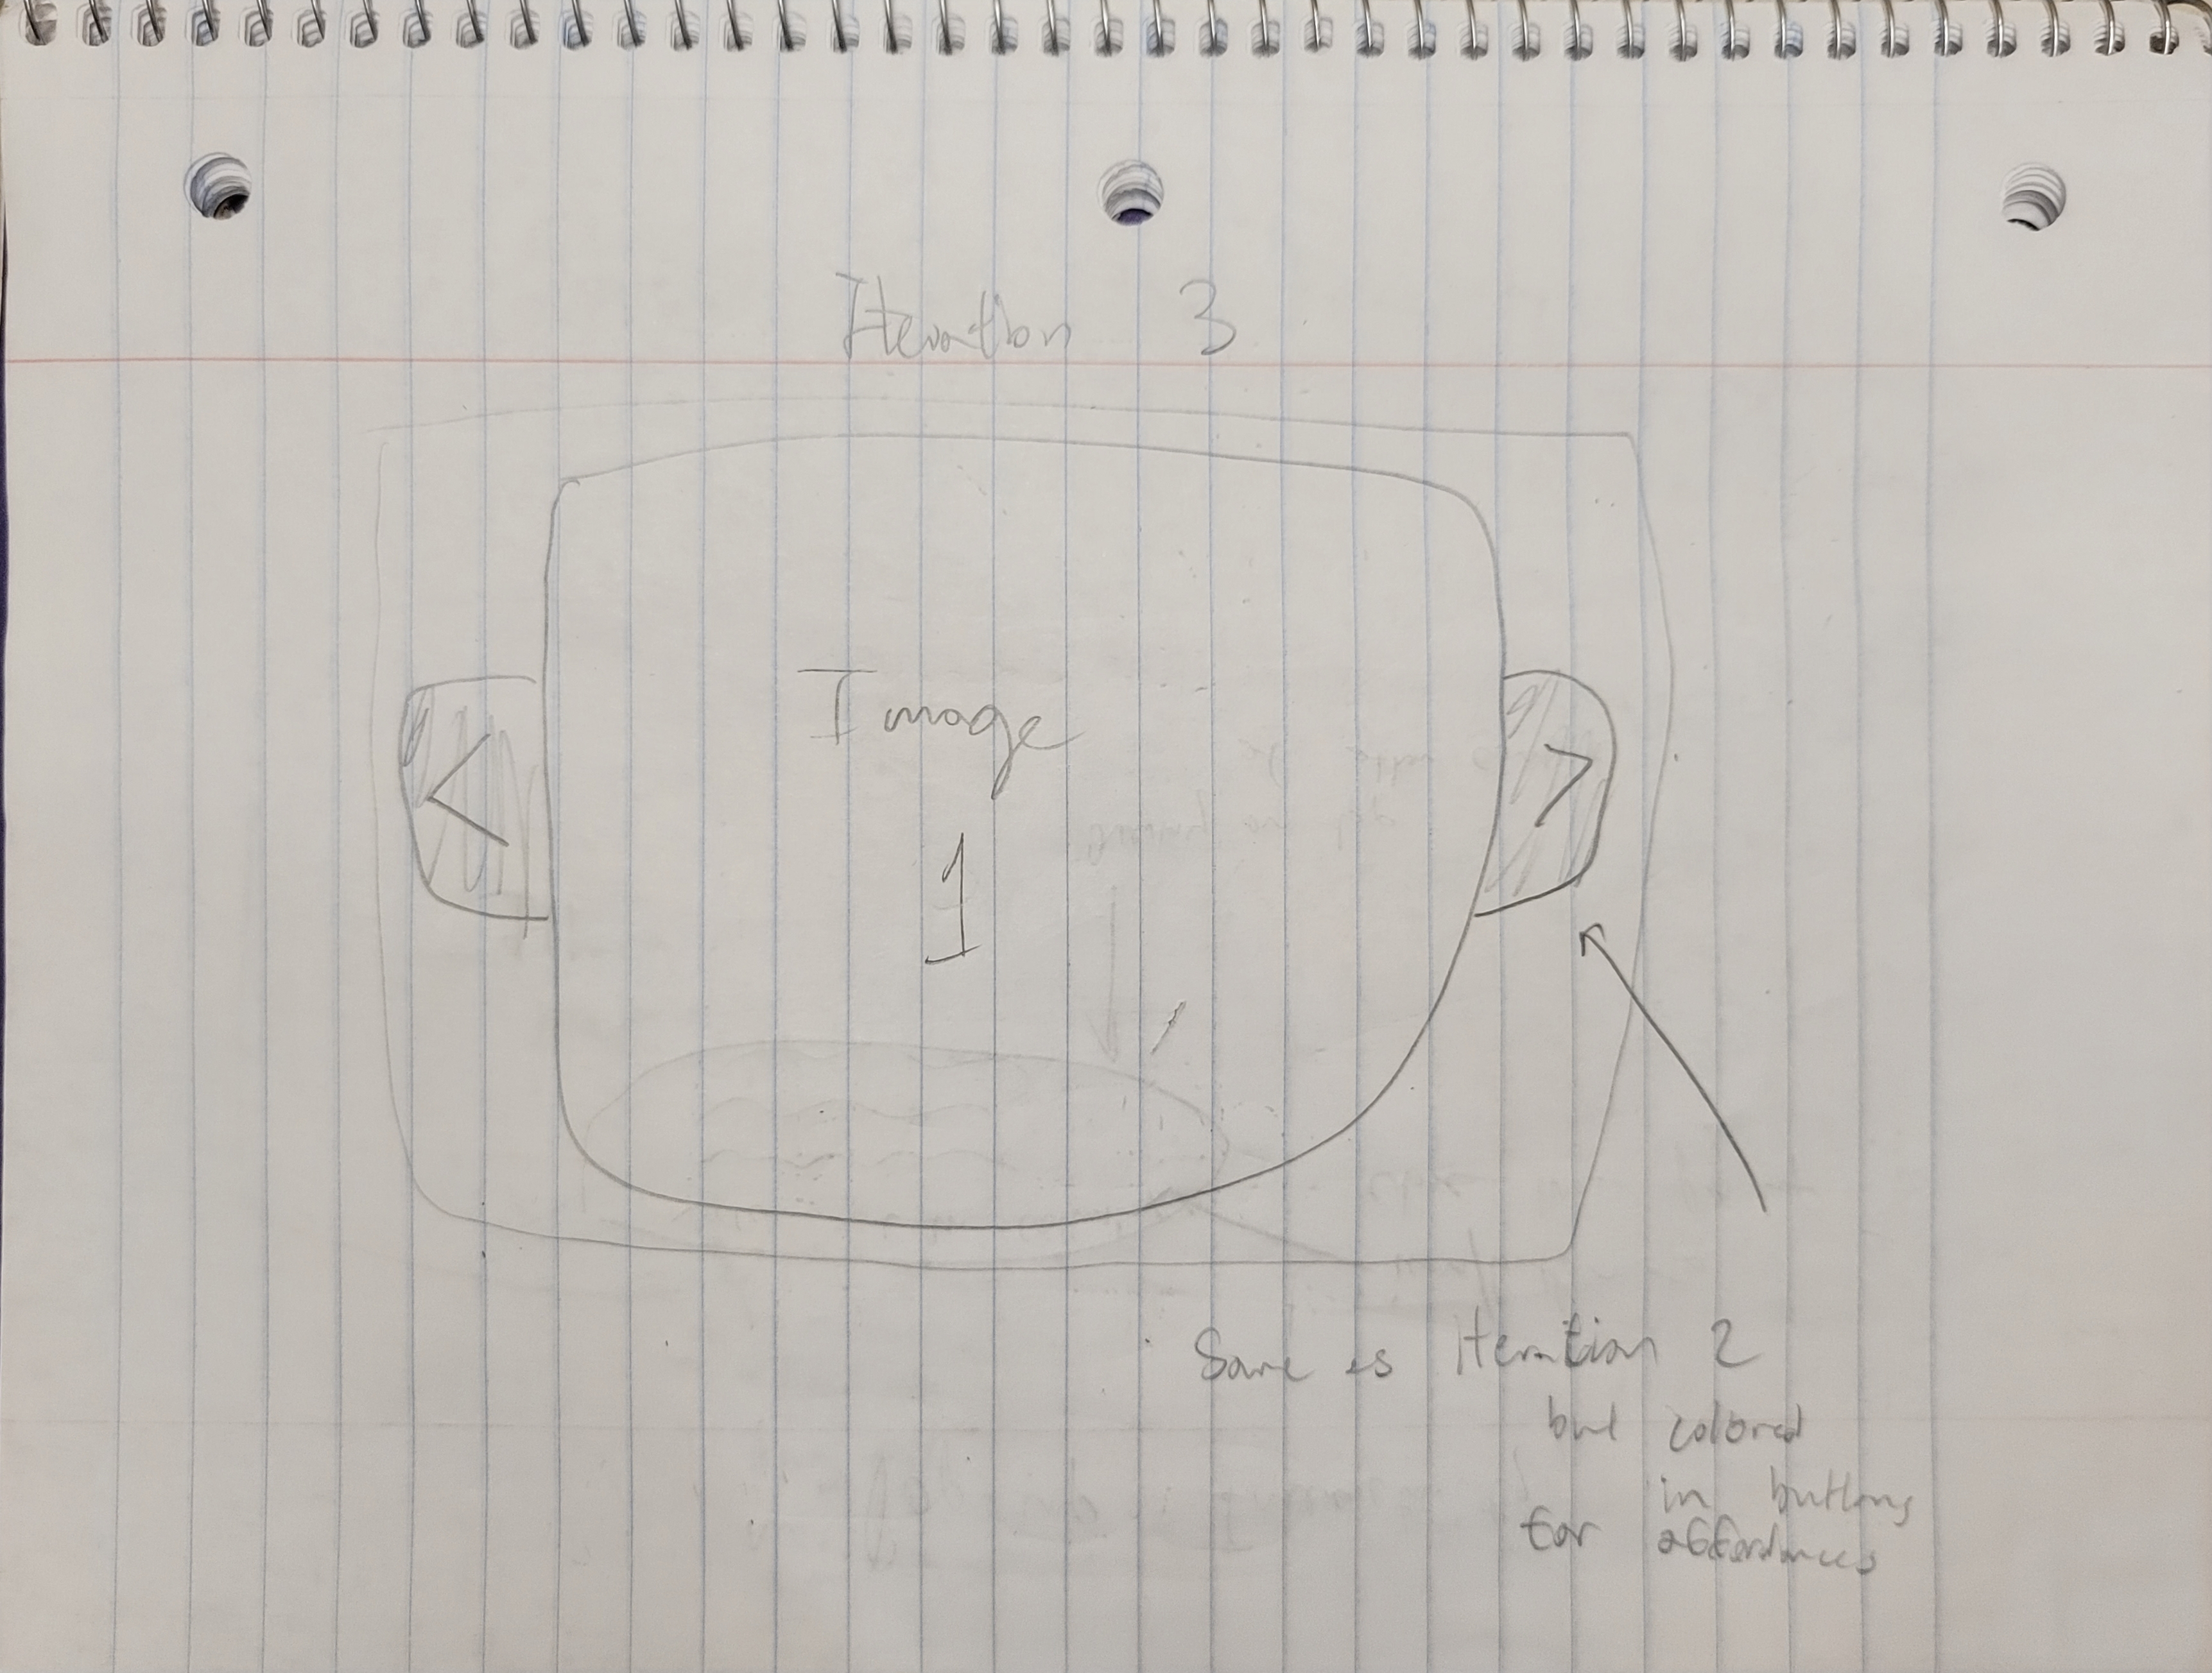 Iteration 3
<
Image
>
1
Same as Iteration 2
but colored
in buttons
for affordances